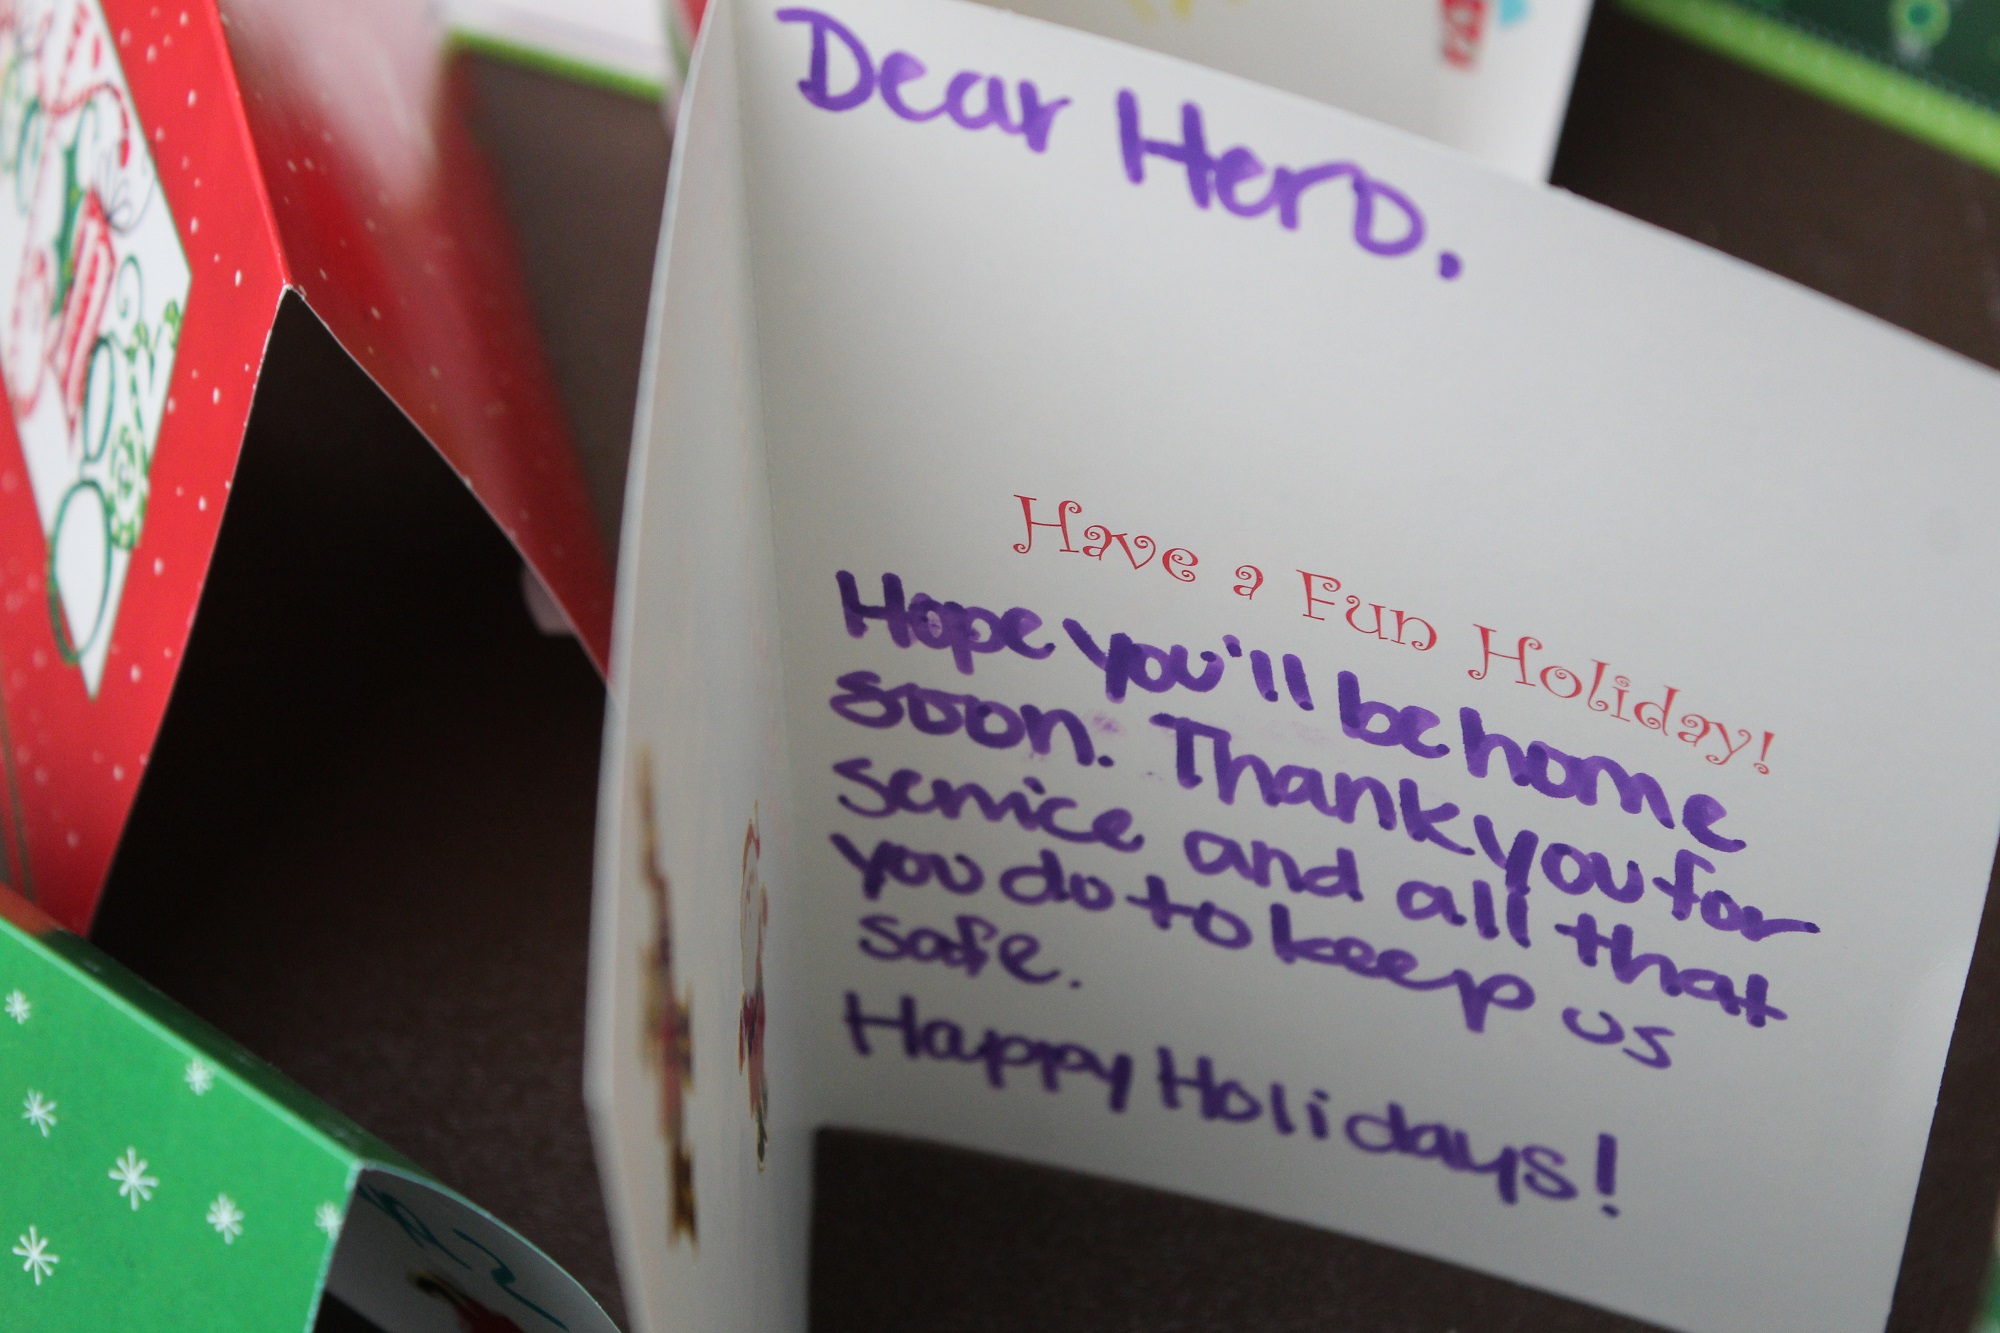 Dear Hero.
Have a Fun Holiday!
Hope you'll be home
soon. Thank you for
service and all that
you do to keep us
safe.
Happy Holidays!